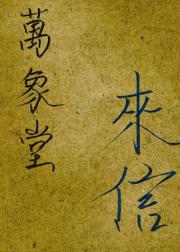 萬象堂
來信